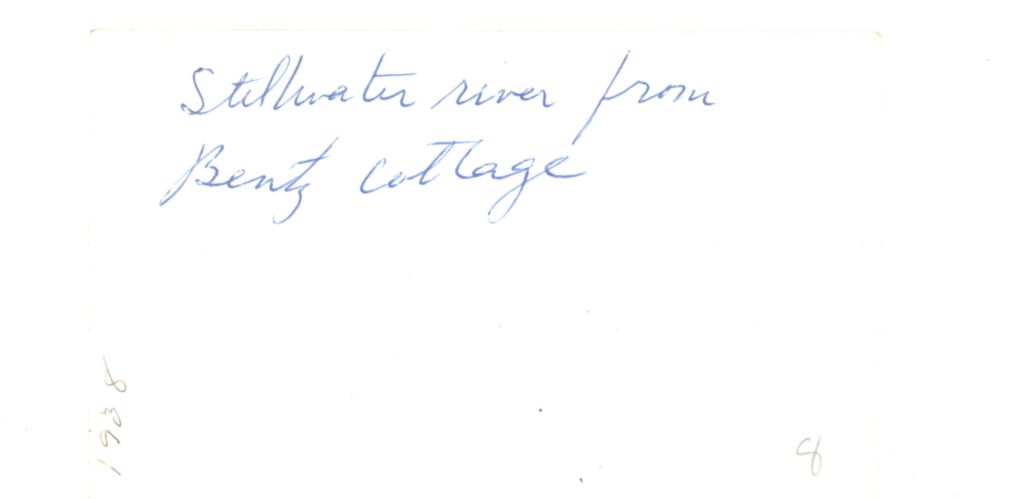 Stillwater river from
Bentz cottage
1938
8